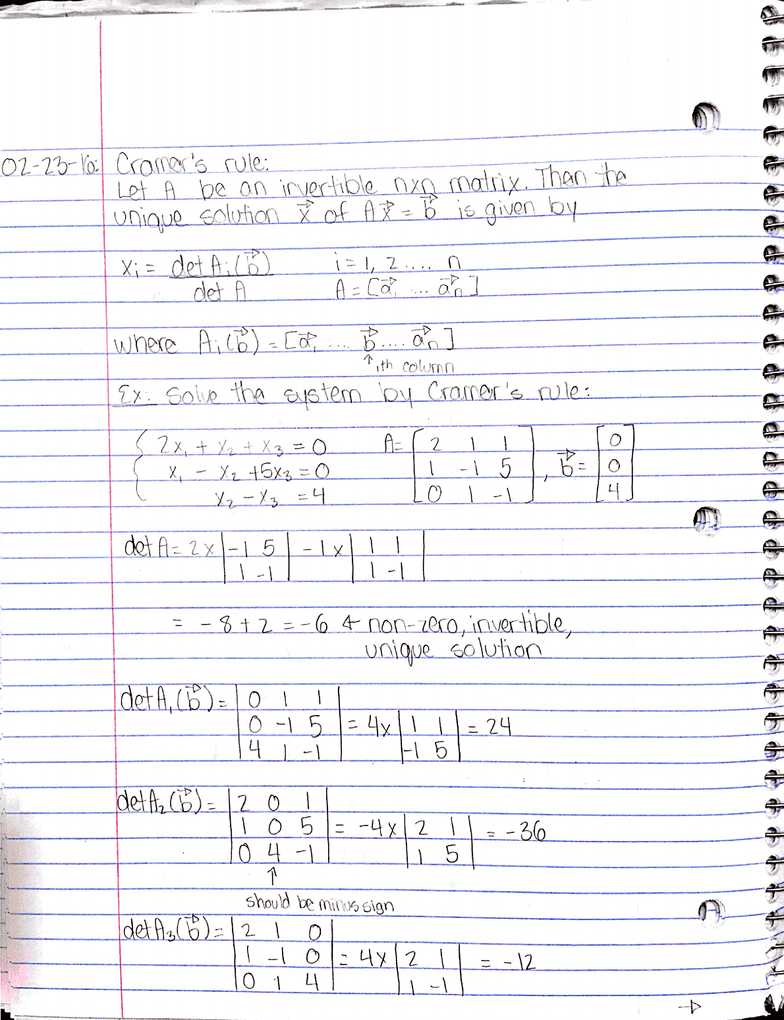 02-23-16: Cramer's rule:
Let A be an invertible nxn matrix. Then the
unique solution x⃗ of Ax⃗ = b⃗ is given by
xi = det Ai(b⃗) / det A    i = 1, 2 .... n
A = [a⃗1 ... a⃗n]
where Ai(b⃗) = [a⃗1 .... b⃗ .... a⃗n]
↑ ith column
Ex. Solve the system by Cramer's rule:
{ 2x1 + x2 + x3 = 0    A = [2 1 1    , b⃗ = [0
x1 - x2 + 5x3 = 0    1 -1 5    0
x2 - x3 = 4    0 1 -1]    4]
det A = 2 x |-1 5| - 1 x |1 1|
|1 -1|    |1 -1|
= -8 + 2 = -6 ← non-zero, invertible,
unique solution
det A1(b⃗) = |0 1 1|
|0 -1 5| = 4 x |1 1| = 24
|4 1 -1|    |-1 5|
det A2(b⃗) = |2 0 1|
|1 0 5| = -4 x |2 1| = -36
|0 4 -1|    |1 5|
↑
should be minus sign
det A3(b⃗) = |2 1 0|
|1 -1 0| = 4 x |2 1| = -12
|0 1 4|    |1 -1|
→